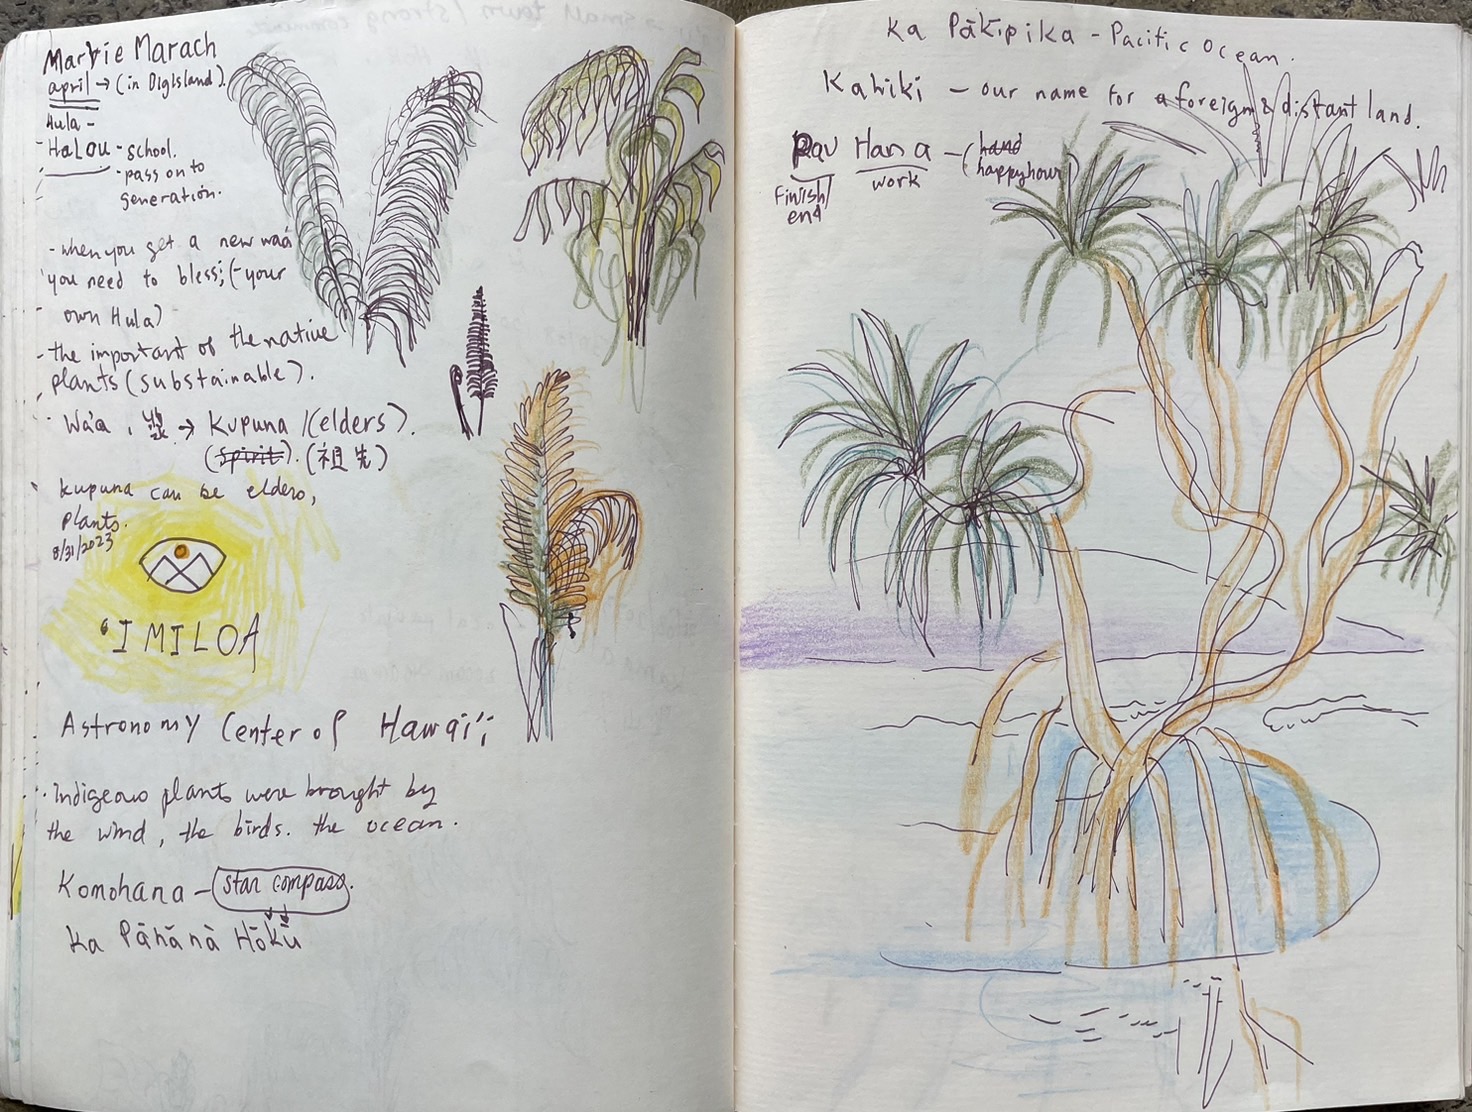 Marvie Marach
april → (in Digisland).
Hula -
- HaLau - school.
- pass on to
generation.
- when you get a new waá
you need to bless; (- your
own Hula)
- the important of the native
plants (substainable).
· Wa'a, → Kupuna /(elders).
(spirit). (祖先)
kupuna can be elders,
plants.
8/31/2023
'IMILOA
Astronomy Center of Hawai'i
· Indigeous plants were brought by
the wind, the birds. the ocean.
Komohana - star compass.
Ka Pānānà Hōkū
Ka Pākīpika - Pacific Ocean.
Kahiki - our name for a foreign & distant land.
Pau Hana - (hand
happyhour)
Finish/ work
end